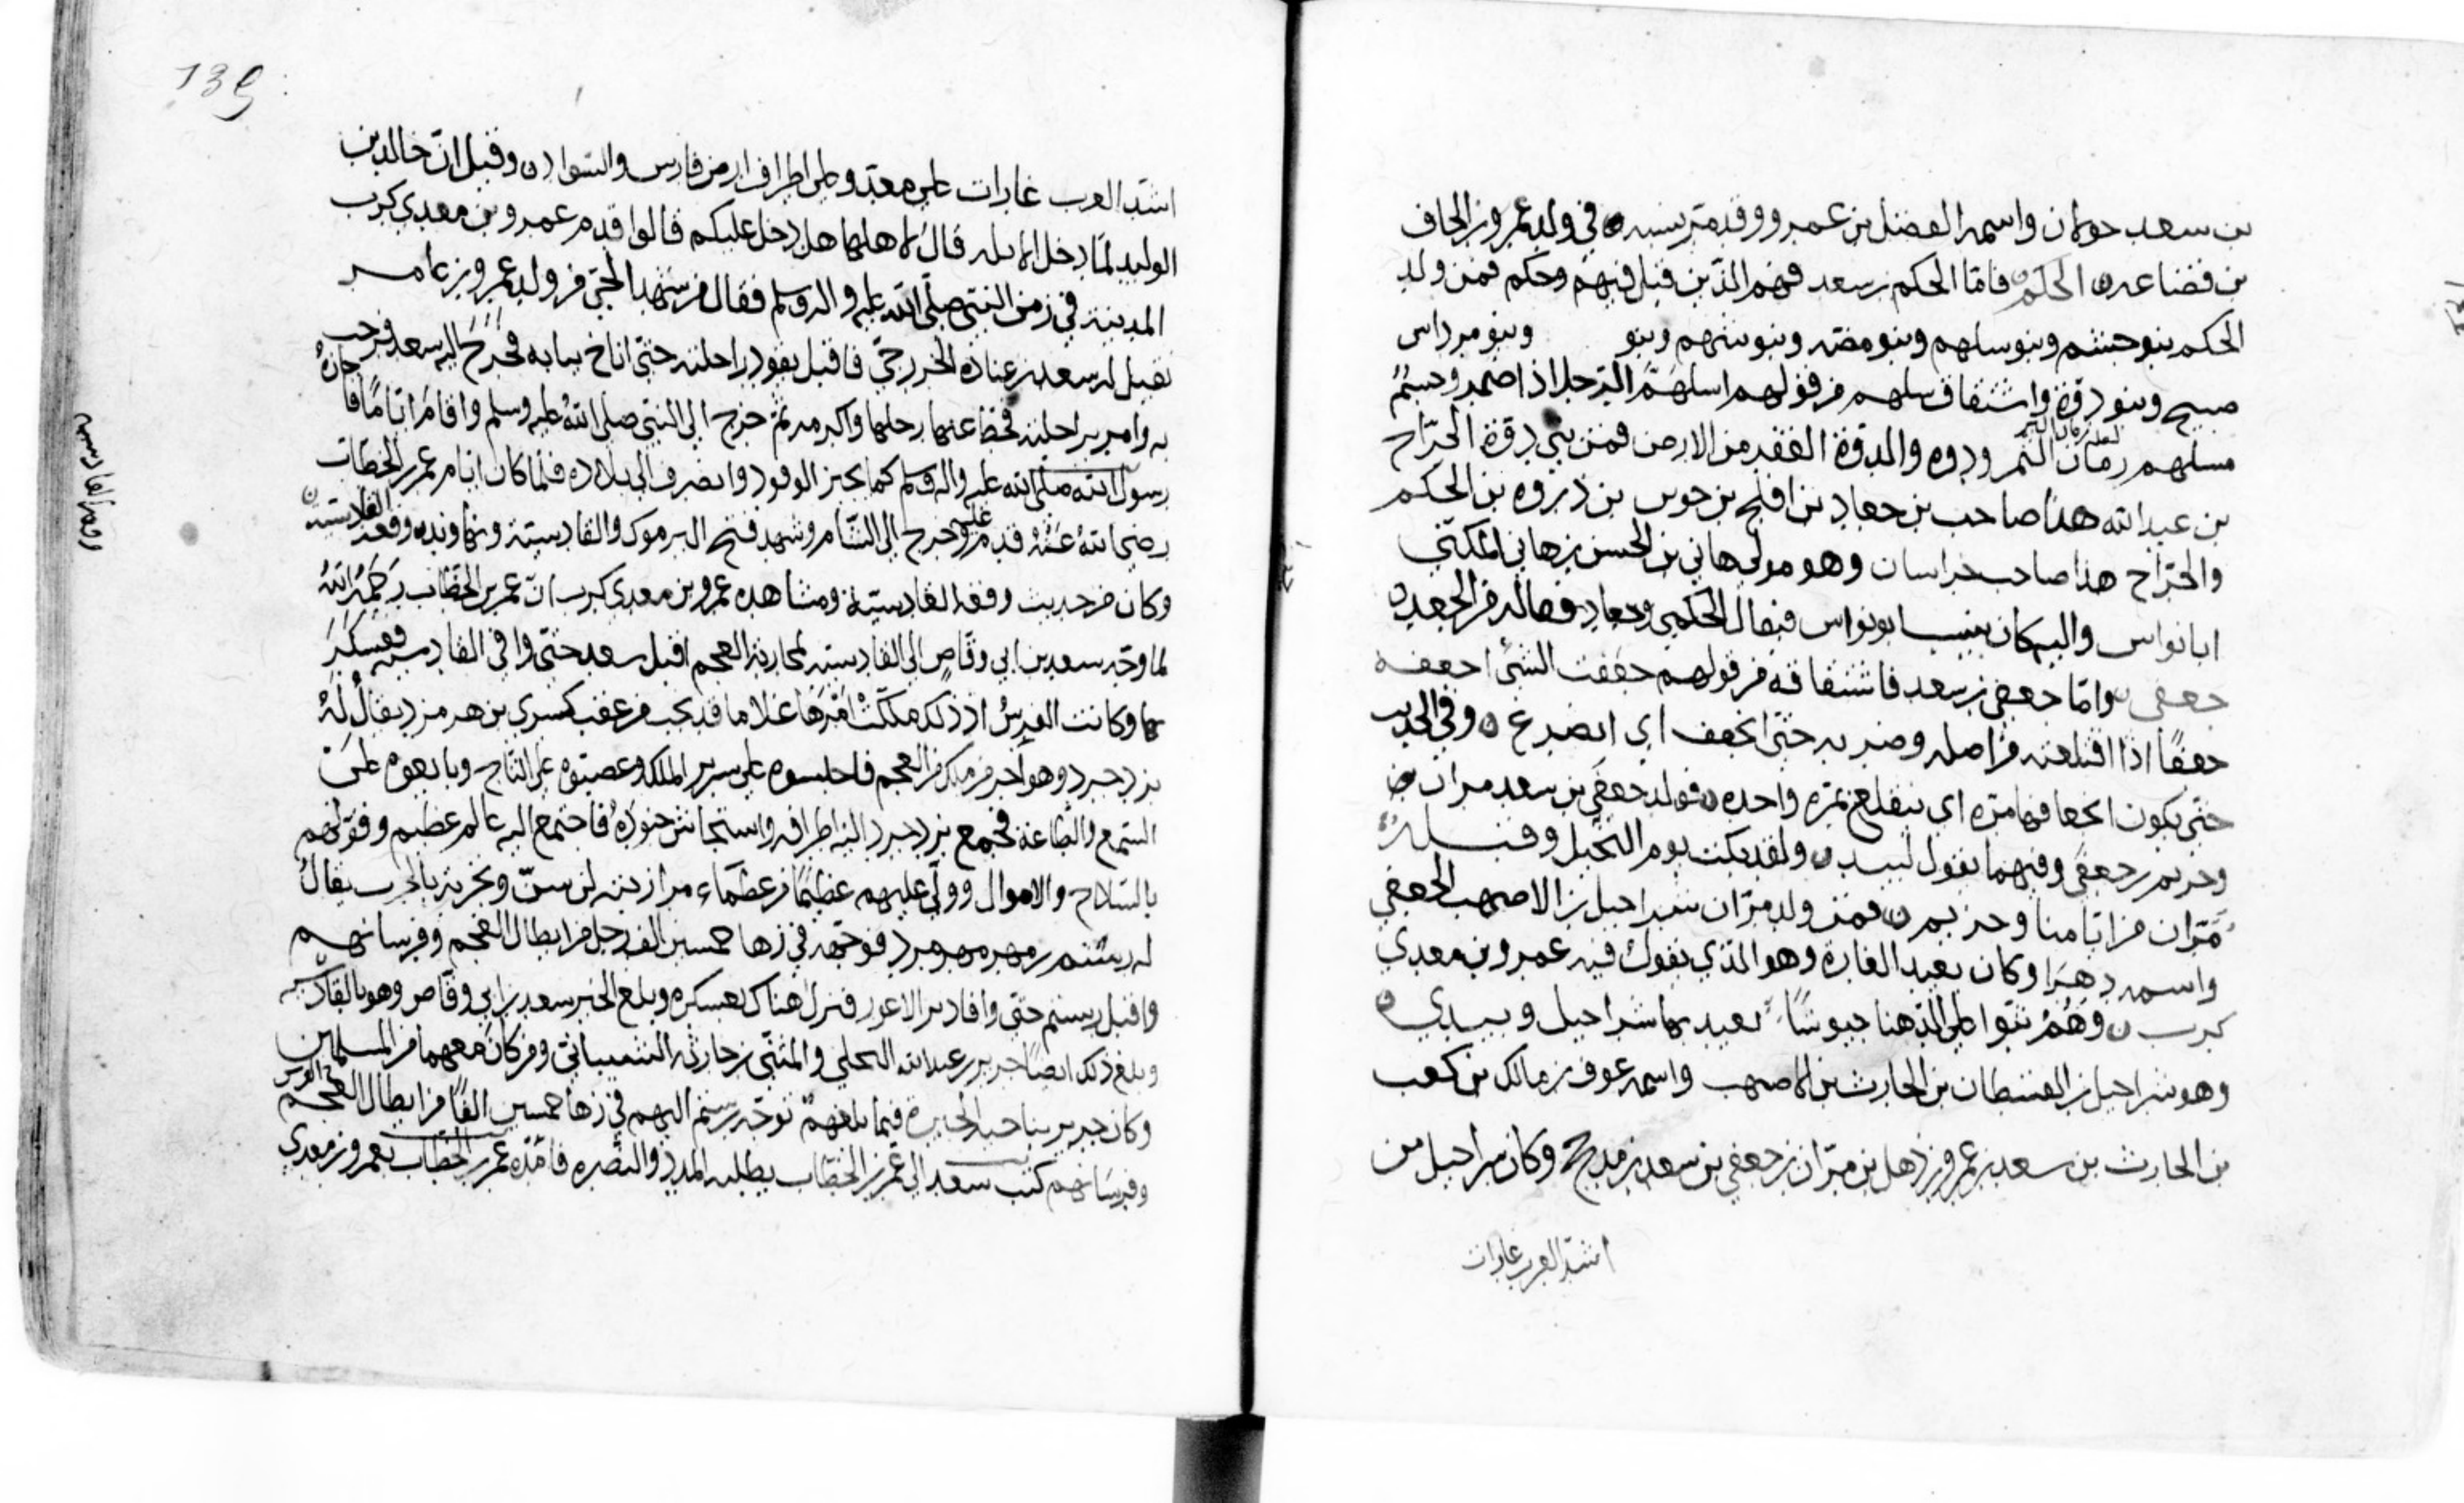 بن سعد حولان واسمه الفضل بن عمرو وقد مر نسبه في ولد عمرو بن الحاف
بن قضاعه الحكم فاما الحكم بن سعد فهم الذين قيل فيهم وحكم فمن ولد
الحكم بنو جشم وبنو سلهم وبنو مضه وبنو وبنو وبنو مرداس
صبيح وبنو دقة واشتقاق سلهم من قولهم اسلهم الرجل اذا اضمر وجسم
مسلهم والدقة الفقد من الارض فمن بني دقة الجراح
بن عبدالله هذا صاحب بن جعاد بن افلح بن بن ذروه بن الحكم
والجراح هذا صاحب خراسان وهو مولى هاني بن الحسن بن هاني المكنى
ابانواس واليه كان ينسب ابو نواس فيقال الحكمي وجعاد فعال من الجعد
جعفي واما جعفي بن سعد فاشتقاقه من قولهم جعفت الشئ اجعفه
جعفا اذا اقتلعته من اصله وضربه حتى انجعف اي انصرع وفي الحديث
حتى يكون انجعافها مره اي ينقلع بمره واحده فولد جعفي بن سعد مران
وحريم بن جعفي وفيهما يقول لبيد ولقد بكت يوم النخيل وقبله
مران من ايامنا وحريم فمن ولد مران شراحيل بن الاصهب الجعفي
واسمه دهرا وكان بعيد الغارة وهو الذي يقول فيه عمرو بن معدي
كرب وهم على الدهنا جيوشا يعيد بها شراحيل ويبدي
وهو شراحيل بن الشيطان بن الحارث بن الاصهب واسمه عوف بن مالك بن كعب
بن الحارث بن سعد بن عمرو بن ذهل بن مران بن جعفي بن سعد بن مذحج وكان شراحيل من
اشد العرب غارات
139
اشد العرب غارات على معد وعلى اطراف ارض فارس والسواد وقيل ان خالد بن
الوليد لما دخل قال لاهلها هل دخل عليكم قالوا قدم عمرو بن معدي كرب
المدينة في زمن النبي صلى الله عليه واله وسلم فقال من سيد الحي من ولد عمرو بن عامر
فقيل له سعد بن عباده الخزرجي فاقبل يقود راحلته حتى اناخ ببابه فخرج اليه سعد فرحب
به وامر براحلته فحط عنها رحلها واكرمه ثم خرج الى النبي صلى الله عليه وسلم واقام اياما فاجازه
رسول الله صلى الله عليه واله وسلم كما يجيز الوفود وانصرف الى بلاده فلما كان ايام عمر بن الخطاب
رضي الله عنه قدم عليه وخرج الى الشام وشهد فتح اليرموك والقادسية ونهاوند وقعة القادسية
وكان من حديث وقعة القادسية ومشاهده عمرو بن معدي كرب ان عمر بن الخطاب رحمه الله
لما وجه سعد بن ابي وقاص الى القادسيه لمحاربة العجم اقبل سعد حتى وافى القادسيه فعسكر
بها وكانت الفرس اذ ذلك ملكت امرها غلاما قد نجب من عقب كسرى بن هرمز يقال له
يزدجرد وهو اخر من ملك من العجم فاجلسوه على سرير الملك وعصبوه بالتاج وبايعوه على
السمع والطاعة فجمع يزدجرد اليه اطرافه واستجاش جنوده فاجتمع اليه عالم عظيم وقواهم
بالسلاح والاموال وولى عليهم عظيما من عظماء مرازبته له سن وتجربة بالحرب يقال
له رستم فوجهه في زها خمسين الف رجل من ابطال العجم وفرسانهم
واقبل رستم حتى وافا دير الاعور فنزل هناك بعسكره وبلغ الخبر سعد بن ابي وقاص وهو بالقادسيه
وبلغ ذلك ايضا جرير بن عبدالله البجلي والمثنى بن حارثه الشيباني ومن كان معهما من المسلمين
وكان جرير بناحية الحيرة فيما بلغهم توجه رستم اليهم في زها خمسين الفا من ابطال العجم
وفرسانهم كتب سعد الى عمر بن الخطاب يطلب المدد والنصره فامده عمر بن الخطاب بعمرو بن معدي
وقعة القادسيه